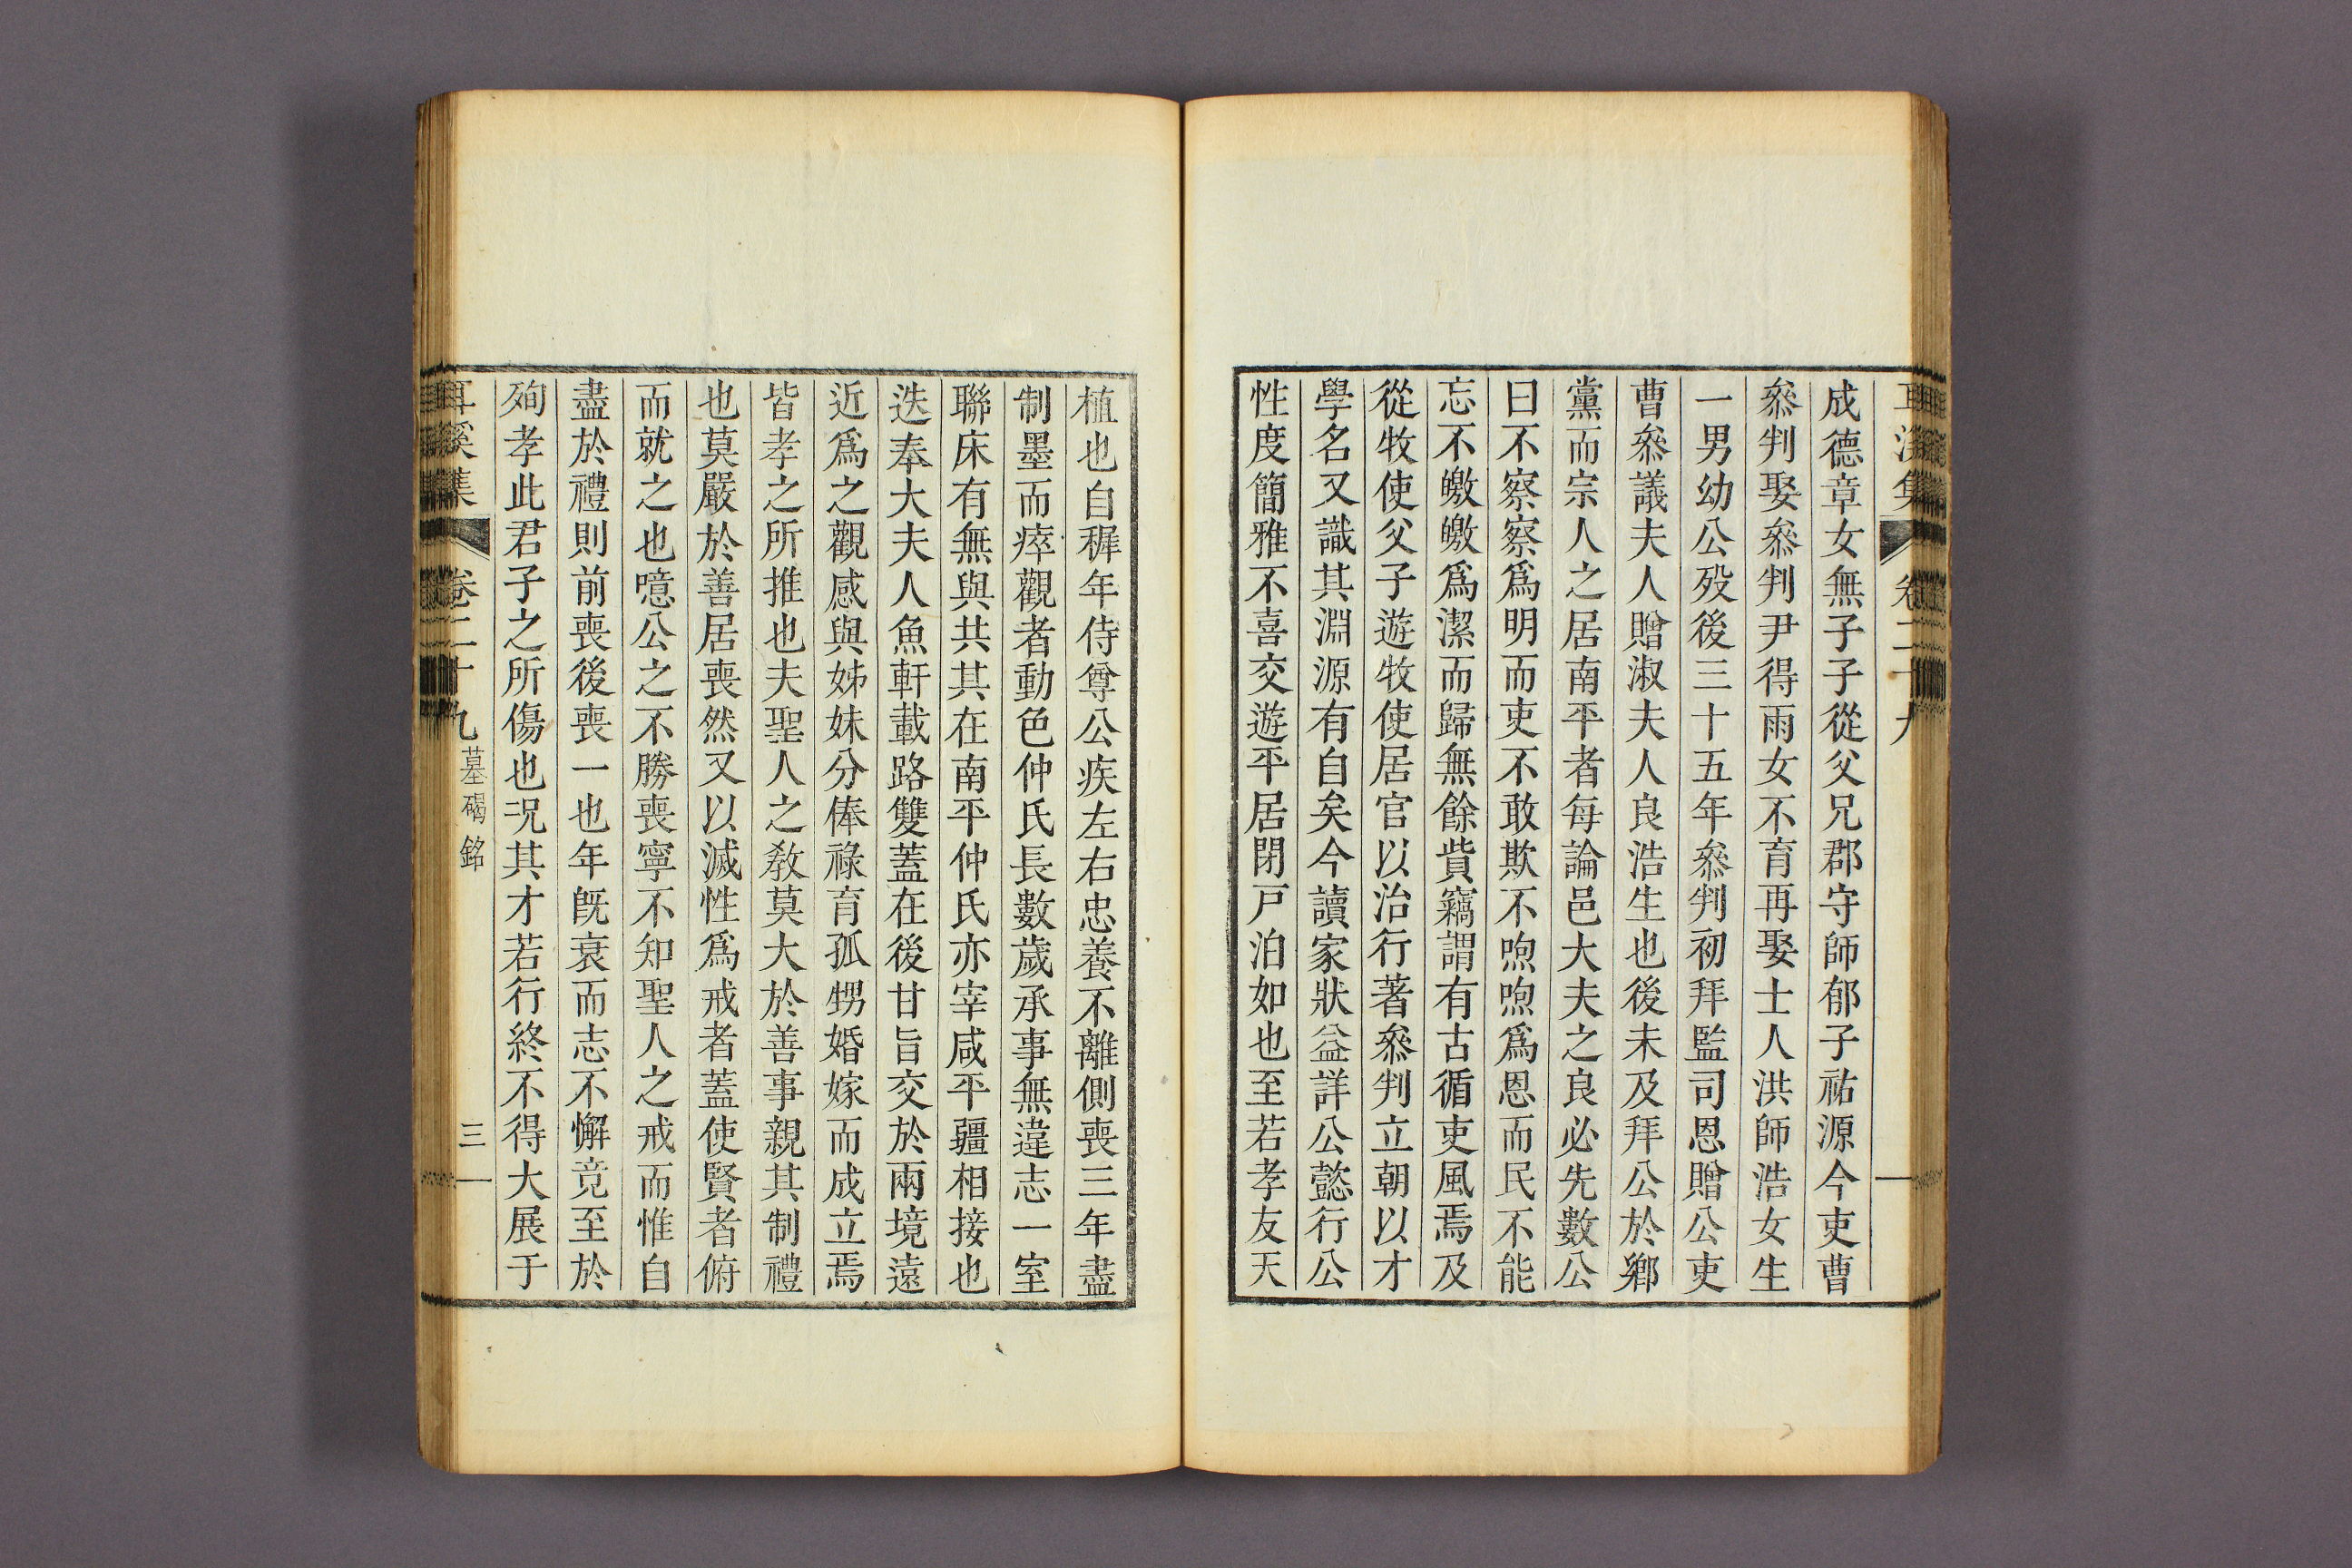 耳溪集 卷二十九
成德章女無子子從父兄郡守師郁子祐源今吏曹
叅判娶叅判尹得雨女不育再娶士人洪師浩女生
一男幼公殁後三十五年叅判初拜監司恩贈公吏
曹叅議夫人贈淑夫人良浩生也後未及拜公於鄕
黨而宗人之居南平者每論邑大夫之良必先數公
曰不察察爲明而吏不敢欺不喣喣爲恩而民不能
忘不皦皦爲潔而歸無餘貲竊謂有古循吏風焉及
從牧使父子遊牧使居官以治行著叅判立朝以才
學名又識其淵源有自矣今讀家狀益詳公懿行公
性度簡雅不喜交遊平居閉戶泊如也至若孝友天
植也自穉年侍尊公疾左右忠養不離側喪三年盡
制墨而瘁觀者動色仲氏長數歲承事無違志一室
聯床有無與共其在南平仲氏亦宰咸平疆相接也
迭奉大夫人魚軒載路雙蓋在後甘旨交於兩境遠
近爲之觀感與姊妹分俸祿育孤甥婚嫁而成立焉
皆孝之所推也夫聖人之敎莫大於善事親其制禮
也莫嚴於善居喪然又以滅性爲戒者蓋使賢者俯
而就之也噫公之不勝喪寧不知聖人之戒而惟自
盡於禮則前喪後喪一也年旣衰而志不懈竟至於
殉孝此君子之所傷也况其才若行終不得大展于
耳溪集 卷二十九 墓碣銘 三